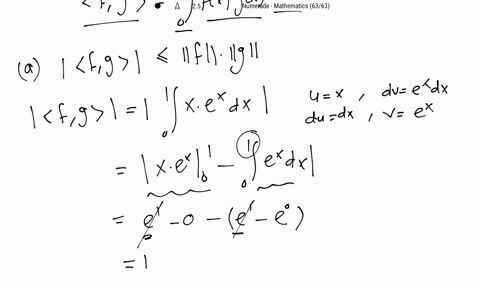 <f,g> = ∫₀ f(x) g(x)
2.5 Numerade - Mathematics (63/63)
(a) |<f,g>| ≤ ||f||·||g||
|<f,g>| = | ∫₀¹ x·eˣ dx |
u=x , dv=eˣdx
du=dx , v=eˣ
= | x·eˣ |₀¹ - ∫₀¹ eˣ dx |
= e¹ - 0 - (e¹ - e⁰)
= 1